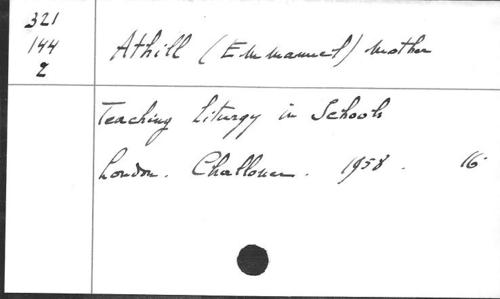 321
144
2
Athill (Emmanuel) Mother
Teaching Liturgy in Schools
London. Challoner. 1958. 16